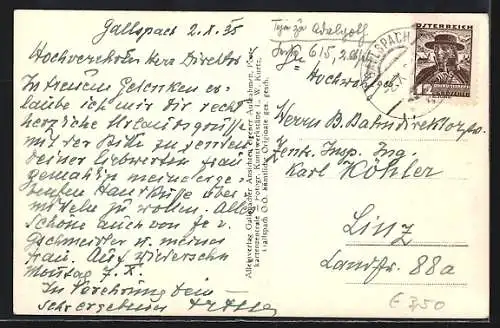 Gallspach 2. X. 35
Hochverehrter Herr Direktor
In treuem Gedenken er-
laube ich mir die recht
herzliche Urlaubsgrüße
mit der Bitte zu senden
deiner liebwerten Frau
gemahlin meine
Handküsse über-
mitteln zu wollen. Alles
Schöne auch von
Gschmeidler u. meiner
Frau. Auf Wiedersehn
Montag 7. X.
In Verehrung dein
sehr ergebener
Alleinverlag Gallspacher Ansichten eigener Aufnahmen. Post-
kartenzentrale — Fotogr. Kunstwerkstätte L. W. Kurtz,
Gallspach O.Ö. Sämtliche Originale ges. gesch.
615,
Hochwohlgeb.
ÖSTERREICH
12
GALLSPACH
Herrn B. Bahndirektor
Zentr. Insp. Ing.
Karl Köhler
Linz
Landstr. 88a
€ 3,50